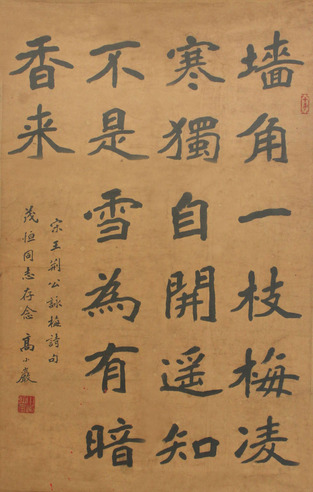 墙角一枝梅凌
寒獨自開遥知
不是雪為有暗
香来
宋王荆公詠梅詩句
茂恒同志存念 高小巖